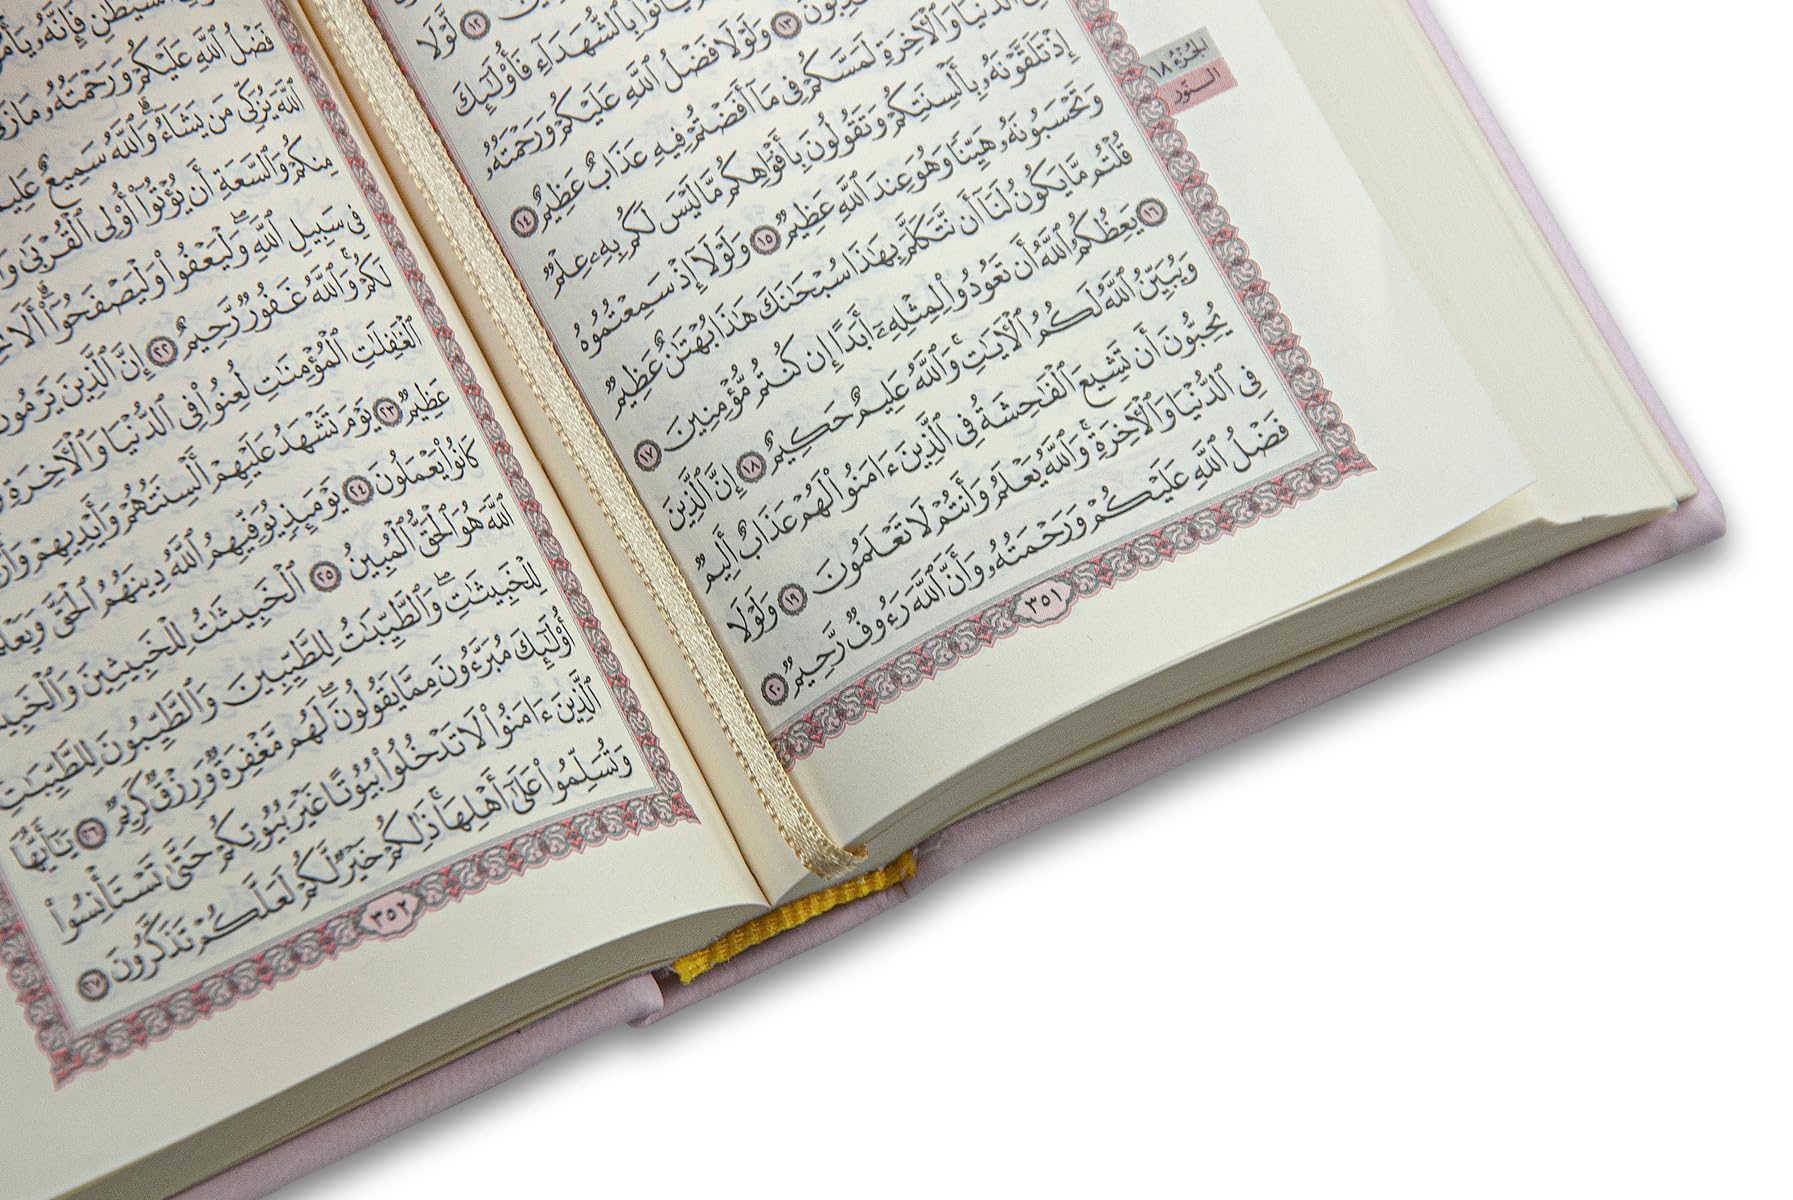 الجزء ١٨
النور
لَّوْلَا
بِالشُّهَدَاءِ فَأُوْلَٰٓئِكَ
١٣ وَلَوْلَا فَضْلُ ٱللَّهِ عَلَيْكُمْ وَرَحْمَتُهُۥ
ٱلدُّنْيَا وَٱلْأَخِرَةِ لَمَسَّكُمْ فِى مَآ أَفَضْتُمْ فِيهِ عَذَابٌ عَظِيمٌ ١٤
إِذْ تَلَقَّوْنَهُۥ بِأَلْسِنَتِكُمْ وَتَقُولُونَ بِأَفْوَاهِكُم مَّا لَيْسَ لَكُم بِهِۦ عِلْمٌ
وَتَحْسَبُونَهُۥ هَيِّنًا وَهُوَ عِندَ ٱللَّهِ عَظِيمٌ ١٥ وَلَوْلَآ إِذْ سَمِعْتُمُوهُ
قُلْتُم مَّا يَكُونُ لَنَآ أَن نَّتَكَلَّمَ بِهَٰذَا سُبْحَٰنَكَ هَٰذَا بُهْتَٰنٌ عَظِيمٌ
١٦ يَعِظُكُمُ ٱللَّهُ أَن تَعُودُوا۟ لِمِثْلِهِۦٓ أَبَدًا إِن كُنتُم مُّؤْمِنِينَ ١٧
وَيُبَيِّنُ ٱللَّهُ لَكُمُ ٱلْأَيَٰتِ وَٱللَّهُ عَلِيمٌ حَكِيمٌ ١٨ إِنَّ ٱلَّذِينَ
يُحِبُّونَ أَن تَشِيعَ ٱلْفَٰحِشَةُ فِى ٱلَّذِينَ ءَامَنُوا۟ لَهُمْ عَذَابٌ أَلِيمٌ
فِى ٱلدُّنْيَا وَٱلْأَخِرَةِ وَٱللَّهُ يَعْلَمُ وَأَنتُمْ لَا تَعْلَمُونَ ١٩ وَلَوْلَا
فَضْلُ ٱللَّهِ عَلَيْكُمْ وَرَحْمَتُهُۥ وَأَنَّ ٱللَّهَ رَءُوفٌ رَّحِيمٌ ٢٠
٣٥١
فَضْلُ ٱللَّهِ عَلَيْكُمْ وَرَحْمَتُهُۥ مَا
ٱللَّهَ يُزَكِّى مَن يَشَآءُ وَٱللَّهُ سَمِيعٌ
مِنكُمْ وَٱلسَّعَةِ أَن يُؤْتُوٓا۟ أُو۟لِى ٱلْقُرْبَىٰ
فِى سَبِيلِ ٱللَّهِ وَلْيَعْفُوا۟ وَلْيَصْفَحُوٓا۟ أَلَا
لَكُمْ وَٱللَّهُ غَفُورٌ رَّحِيمٌ ٢٢ إِنَّ ٱلَّذِينَ يَرْمُونَ
ٱلْغَٰفِلَٰتِ ٱلْمُؤْمِنَٰتِ لُعِنُوا۟ فِى ٱلدُّنْيَا وَٱلْأَخِرَةِ
عَظِيمٌ ٢٣ يَوْمَ تَشْهَدُ عَلَيْهِمْ أَلْسِنَتُهُمْ وَأَيْدِيهِمْ
كَانُوا۟ يَعْمَلُونَ ٢٤ يَوْمَئِذٍ يُوَفِّيهِمُ ٱللَّهُ دِينَهُمُ ٱلْحَقَّ
ٱللَّهَ هُوَ ٱلْحَقُّ ٱلْمُبِينُ ٢٥ ٱلْخَبِيثَٰتُ لِلْخَبِيثِينَ
لِلْخَبِيثَٰتِ وَٱلطَّيِّبَٰتُ لِلطَّيِّبِينَ وَٱلطَّيِّبُونَ لِلطَّيِّبَٰتِ
أُو۟لَٰٓئِكَ مُبَرَّءُونَ مِمَّا يَقُولُونَ لَهُم مَّغْفِرَةٌ وَرِزْقٌ كَرِيمٌ ٢٦ يَٰٓأَيُّهَا
ٱلَّذِينَ ءَامَنُوا۟ لَا تَدْخُلُوا۟ بُيُوتًا غَيْرَ بُيُوتِكُمْ حَتَّىٰ تَسْتَأْنِسُوا۟
وَتُسَلِّمُوا۟ عَلَىٰٓ أَهْلِهَا ذَٰلِكُمْ خَيْرٌ لَّكُمْ لَعَلَّكُمْ تَذَكَّرُونَ ٢٧
٣٥٢